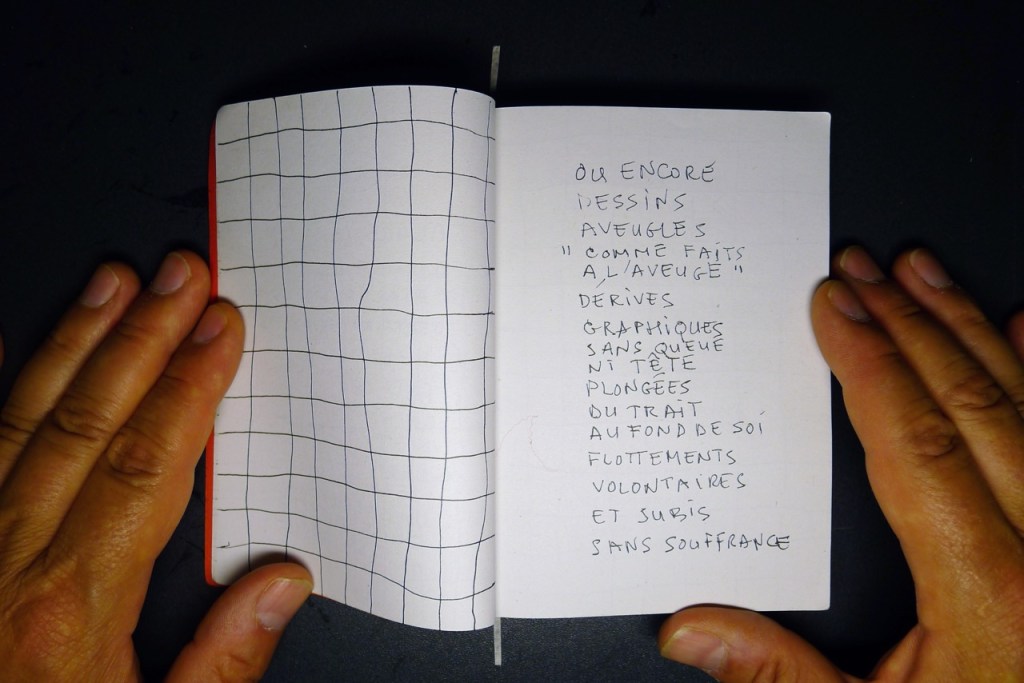 OU ENCORE
DESSINS
AVEUGLES
" COMME FAITS
A L'AVEUGE "
DÉRIVES
GRAPHIQUES
SANS QUEUE
NI TÊTE
PLONGÉES
DU TRAIT
AU FOND DE SOI
FLOTTEMENTS
VOLONTAIRES
ET SUBIS
SANS SOUFFRANCE